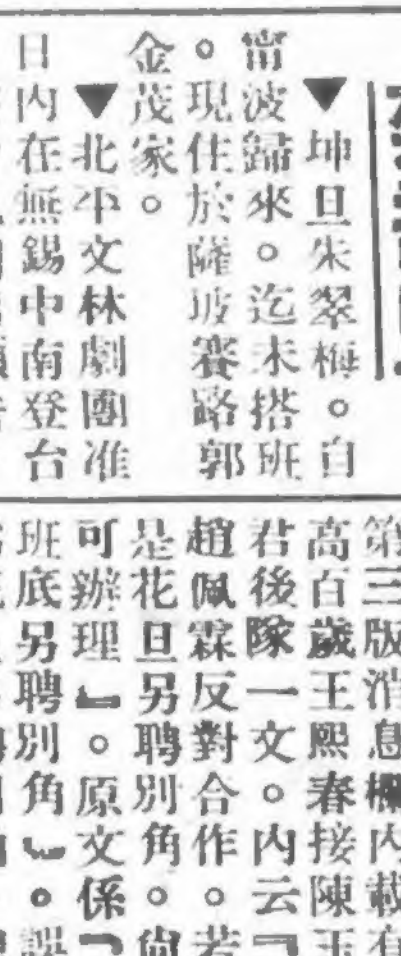 ▼坤旦朱翠梅。自
甯波歸來。迄未搭班
。現住於薩坡賽路郭
金茂家。
▼北平文林劇團准
日內在無錫中南登台
第三版消息欄內載有
高百歲王熙春接陳玉
君後隊一文。內云『
趙佩霖反對合作。若
是花旦另聘別角。尙
可辦理』。原文係『
班底另聘別角』。誤